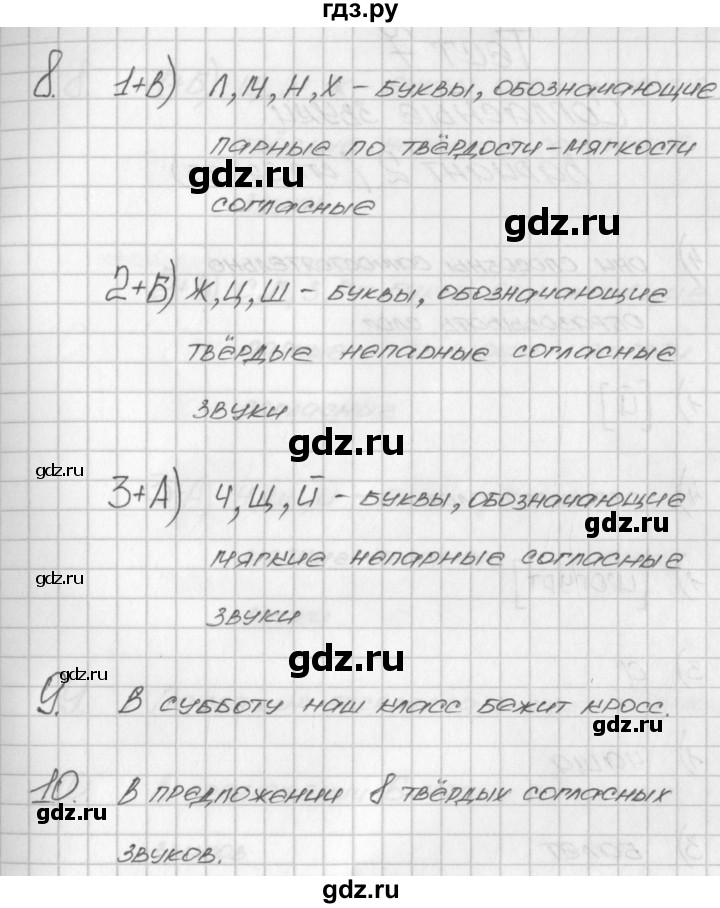 гдз.ру
8. 1+В) Л, М, Н, Х – буквы, обозначающие
парные по твёрдости-мягкости
gdz.ru
согласные
gdz.ru
2+Б) Ж, Ц, Ш – буквы, обозначающие
твёрдые непарные согласные
звуки
gdz.ru
gdz.ru
3+А) Ч, Щ, Й – буквы, обозначающие
gdz.ru
мягкие непарные согласные
gdz.ru
звуки
gdz.ru
gdz.ru
9. В субботу наш класс бежит кросс.
gdz.ru
10. В предложении 8 твёрдых согласных
gdz.ru
gdz.ru
звуков.
gdz.ru